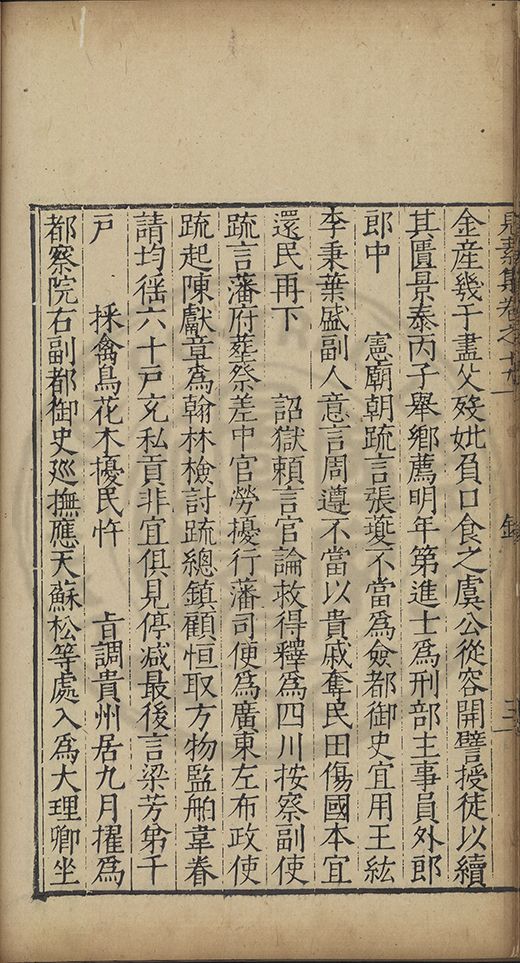 見素集卷之十九
金產幾于盡父歿妣負口食之虞公從容開譬授徒以續
其匱景泰丙子舉鄉薦明年第進士爲刑部主事員外郎
郎中　　憲廟朝疏言張夔不當爲僉都御史宜用王紘
李秉葉盛副人意言周遵不當以貴戚奪民田傷國本宜
還民再下　　詔獄賴言官論救得釋爲四川按察副使
疏言藩府葬祭差中官勞擾行藩司便爲廣東左布政使
疏起陳獻章爲翰林檢討疏總鎮顧恒取方物監舶韋眷
請均徭六十戶充私貢非宜俱見停减最後言梁芳弟千
戶　　採禽鳥花木擾民忤　　旨調貴州居九月擢爲
都察院右副都御史廵撫應天蘇松等處入爲大理卿坐